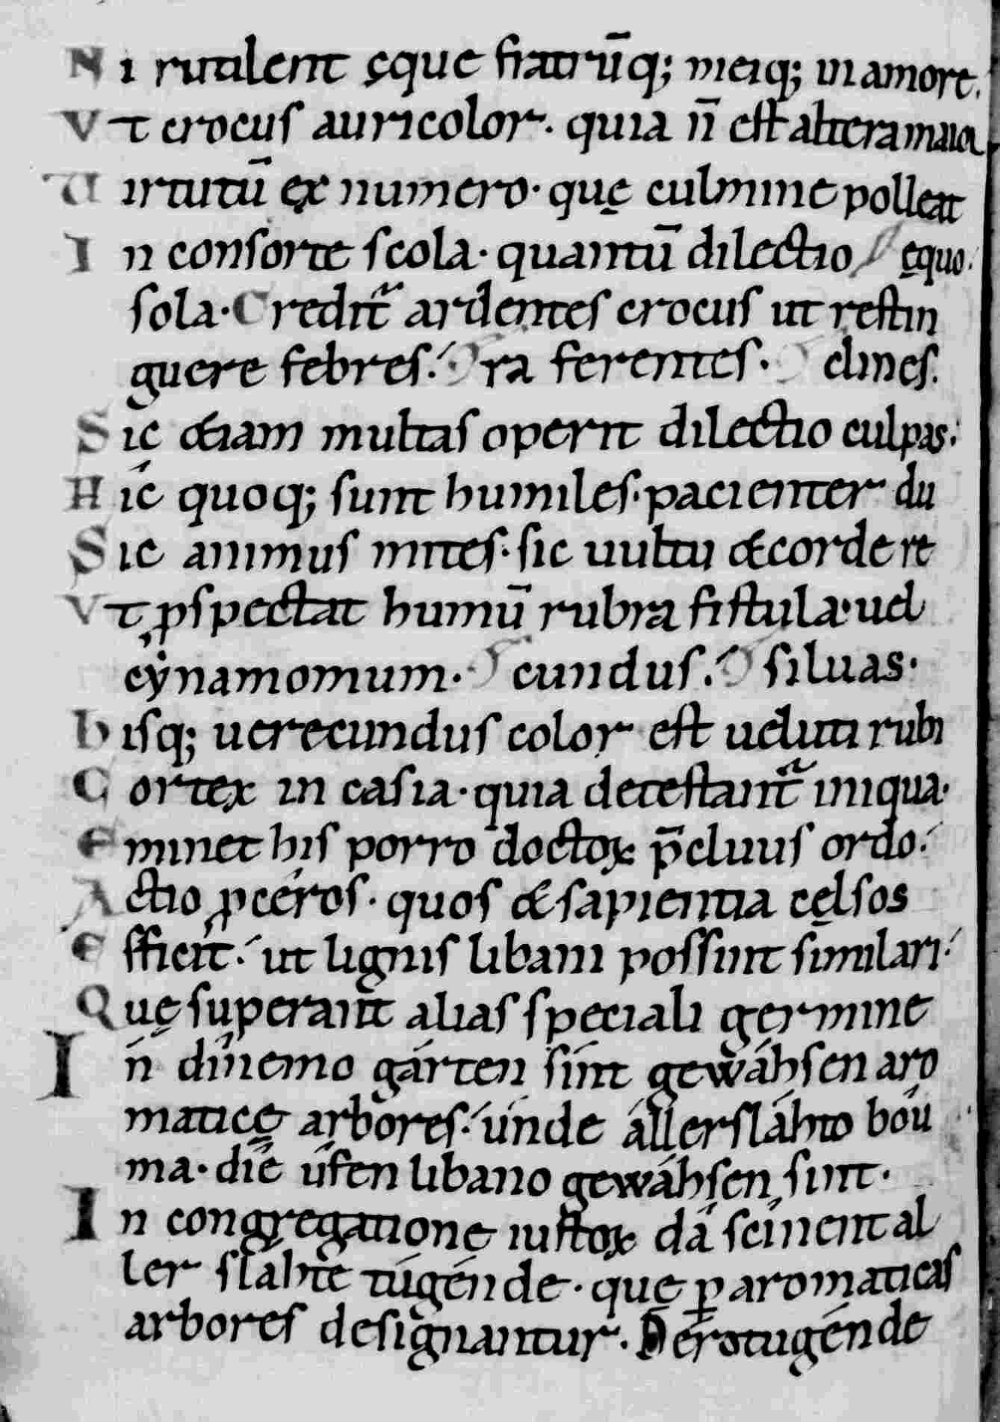 Ni rutilent ęque fratrū q; meiq; in amore.
Vt crocus auricolor· quia n̄ est altera maior
Virtutū ex numero· quę culmine polleat
In consorte scola· quantū dilectio ęquo.
sola· Credit᷑ ardentes crocus ut restin
guere febres. ra ferentes· clines.
Sic &iam multas operit dilectio culpas.
Hic quoq; sunt humiles· pacienter du
Sic animus mites· sic uultu &corde re
Vt ꝓspectat humū rubra fistula· uel
cẏnamomum· cundus. siluas·
bisq; uerecundus color est ueluti rubi
Cortex in casia· quia detestant᷑ iniqua·
Eminet his porro doctoꝝ p̄cluus ordo.
Actio ꝓceros· quos &sapientia celsos
Efficit. ut lignis libani possint similari.
Quę superant alias speciali germine
In dinemo gárten sint gewáhsen aro
maticę arbores. únde állerslahto boū
ma· díe ūfen libano gewáhsen sint·
In congregatione iustoꝝ dá scinent al
ler sláhte túgénde· quę ꝑ aromaticas
arbores designantur· Derotugénde